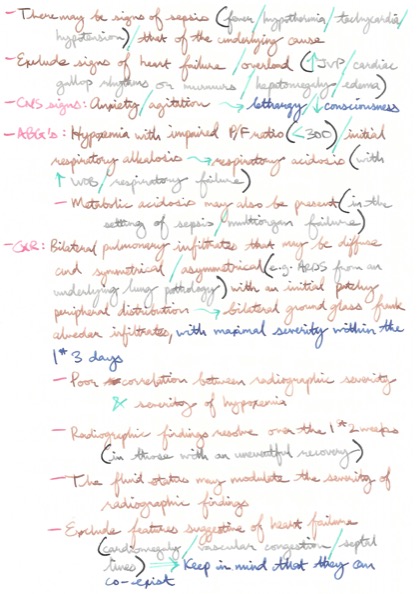 - There may be signs of sepsis (fever / hypothermia / tachycardia /
hypotension) / that of the underlying cause
- Exclude signs of heart failure / overload (↑JVP / cardiac
gallop rhythms or murmurs / hepatomegaly / edema)
- CNS signs: Anxiety / agitation → lethargy / ↓ consciousness
- ABG's: Hypoxemia with impaired P/F ratio (<300) / initial
respiratory alkalosis → respiratory acidosis (with
↑ WOB / respiratory failure)
- Metabolic acidosis may also be present (in the
setting of sepsis / multiorgan failure)
- CXR: Bilateral pulmonary infiltrates that may be diffuse
and symmetrical / asymmetrical (e.g. ARDS from an
underlying lung pathology) with an initial patchy
peripheral distribution → bilateral ground glass / frank
alveolar infiltrates, with maximal severity within the
1st 3 days
- Poor correlation between radiographic severity
& severity of hypoxemia
- Radiographic findings resolve over the 1st 2 weeks
(in those with an uneventful recovery)
- The fluid status may modulate the severity of
radiographic findings
- Exclude features suggestive of heart failure
(cardiomegaly / vascular congestion / septal
lines) ⇒ Keep in mind that they can
co-exist